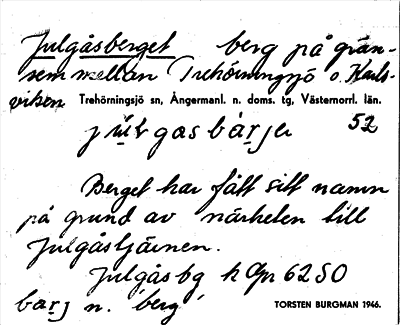 Julgåsberget berg på grän-
sen mellan Trehörningsjö o. Karls-
viken Trehörningsjö sn, Ångermanl. n. doms. tg, Västernorrl. län.
52
Berget har fått sitt namn
på grund av närheten till
Julgåstjärnen.
Julgåsbg h Gp 62 SO
barj n. ʻbergʼ
TORSTEN BURGMAN 1946.